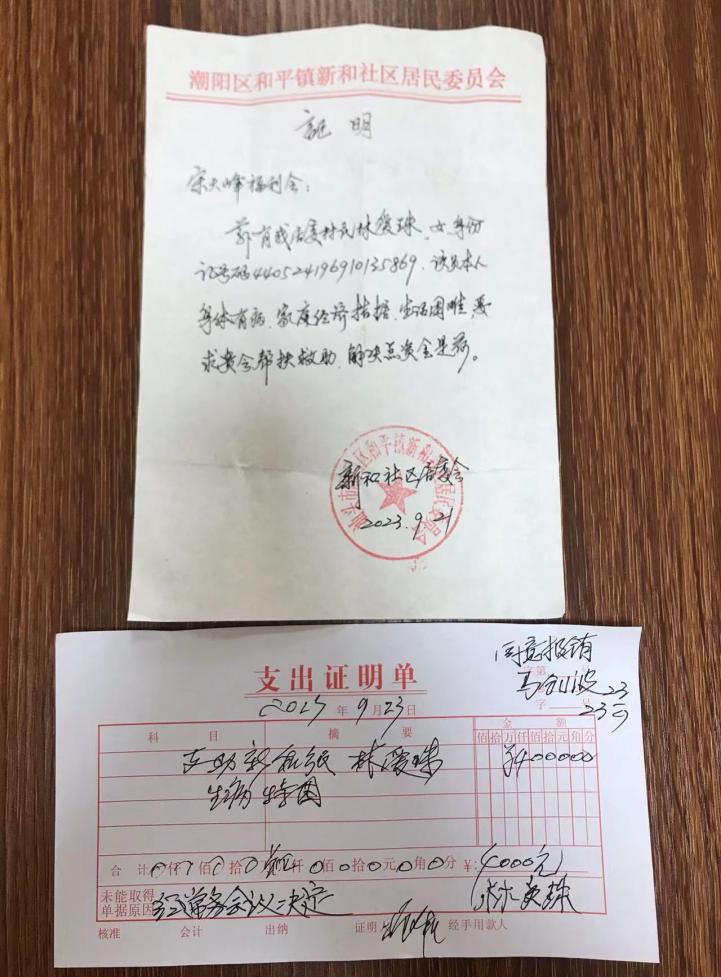 潮阳区和平镇新和社区居民委员会
証明
宋大峰福利会：
兹有我居委村民林爱珠，女，身份
证号码440524196910135869，该员本人
身体有病，家庭经济拮据，生活困难，恳
求贵会帮扶救助，解决点资金是荷。
新和社区居委会
2023.9.21
同意报销
支出证明单
年9月23日
字第 号
科目 摘要 金额
佰拾万仟佰拾元角分
林爱珠 ¥400000
生病特困
合计 仟佰拾 仟佰拾元角分 ¥:4000元
未能取得
单据原因 经常务会议决定
核准 会计 出纳 证明 经手用款人